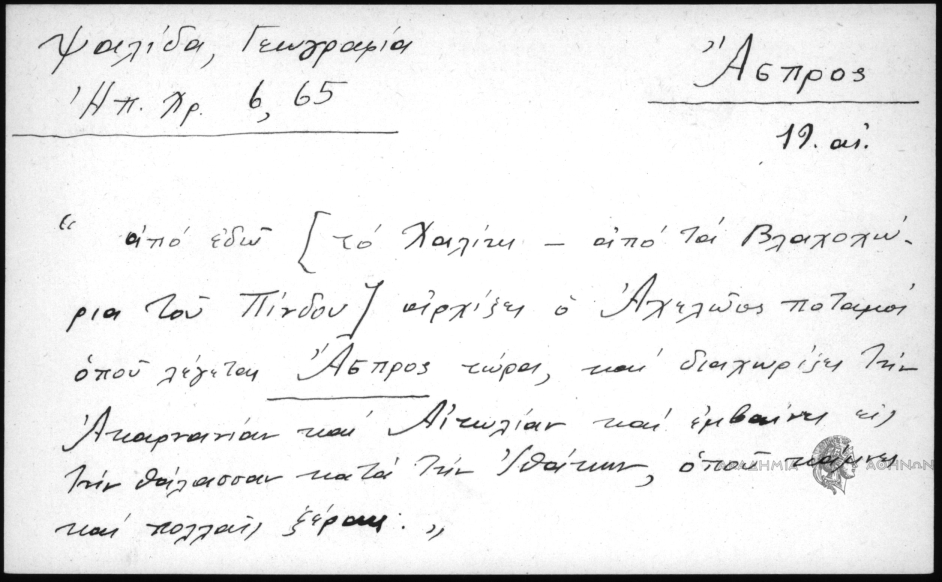 Ψαλίδα, Γεωγραφία
Ἠπ. Χρ. 6, 65
Ἄσπρος
19. αἰ.
“ ἀπό ἐδῶ [τό Χαλίκι – ἀπό τά Βλαχοχώ-
ρια τοῦ Πίνδου] ἀρχίζει ὁ Ἀχελῶος ποταμός
ὁποῦ λέγεται Ἄσπρος τώρα, καί διαχωρίζει τήν
Ἀκαρνανίαν καί Αἰτωλίαν καί ἐμβαίνει εἰς
τήν θάλασσαν κατά τήν Ἰθάκην, ὁποῦ κάμνει
καί πολλαῖς ξέραις. „
ΑΚΑΔΗΜΙΑ ΑΘΗΝΩΝ